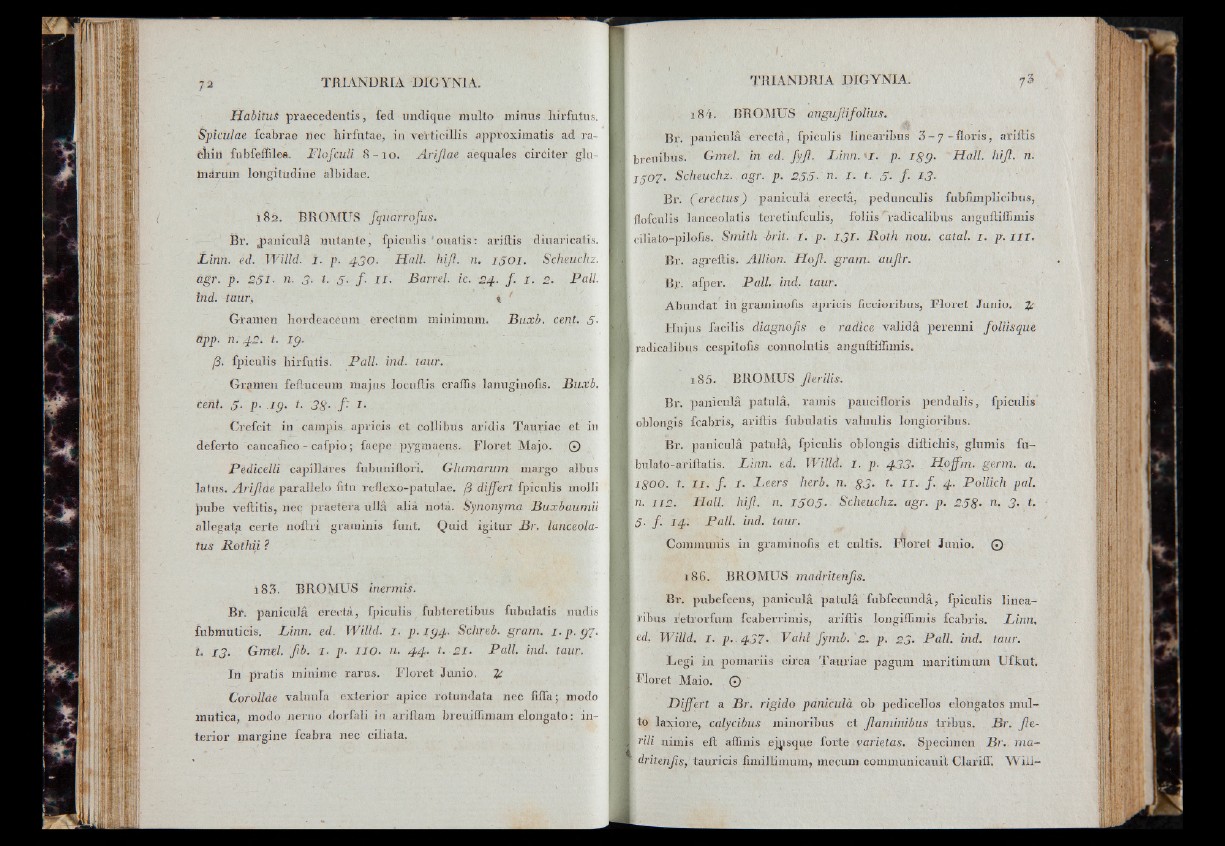 72 TRIANDRIA DIGYNIA.
Habitus praecedentis, ſed undique multo minus hirſutus.
Spiculae ſcabrae nec hirſutae, in verticillis approximatis ad ra-
chin ſubſeſſiles. Floſculi 8-10. Ariſtae aequales circiter glu-
marum longitudine albidae.
182. BROMUS ſquarroſus.
Br. paniculâ nutante, ſpiculis ouatis: ariſtis diuaricatis.
Linn. ed. Willd. 1. p. 430. Hall. hiſt. n. 1501. Scheuchz.
agr. p. 251. n. 3. t. 5. f. 11. Barrel. ic. 24. f. 1. 2. Pall.
ind. taur.
Gramen hordeaceum erectum minimum. Buxb. cent. 5.
app. n. 42. t. 19.
β. ſpiculis hirſutis. Pall. ind. taur.
Gramen feſtuceum majus locuſtis craſſis lanuginoſis. Buxb.
cent. 5. p. 19. t. 38. f. 1.
Creſcit in campis apricis et collibus aridis Tauriae et in
deſerto caucaſico-caſpio; ſaepe pygmaeus. Floret Majo. ⊙
Pedicelli capillares ſubuniflori. Glumarum margo albus
latus. Ariſtae parallelo ſitu reflexo-patulae. β differt ſpiculis molli
pube veſtitis, nec praetera ullâ aliâ notâ. Synonyma Buxbaumii
allegata certe noſtri graminis ſunt. Quid igitur Br. lanceola-
tus Rothii?
183. BROMUS inermis.
Br. paniculâ erectâ, ſpiculis ſubteretibus ſubulatis nudis
ſubmuticis. Linn. ed. Willd. 1. p. 194. Schreb. gram. 1. p. 97.
t. 13. Gmel. ſib. 1. p. 110. n. 44. t. 21. Pall. ind. taur.
In pratis minime rarus. Floret Junio. ♃
Corollae valuula exterior apice rotundata nec fiſſa; modo
mutica, modo neruo dorſali in ariſtam breuiſſimam elongato: in-
terior margine ſcabra nec ciliata.
TRIANDRIA DIGYNIA. 73
184. BROMUS anguſtifolius.
Br. paniculâ erectâ, ſpiculis linearibus 3-7-floris, ariſtis
breuibus. Gmel. in ed. ſyſt. Linn. 1. p. 189. Hall. hiſt. n.
1507. Scheuchz. agr. p. 255. n. 1. t. 5. f. 13.
Br. (erectus) paniculâ erectâ, pedunculis ſubſimplicibus,
floſculis lanceolatis teretiuſculis, foliis radicalibus anguſtiſſimis
ciliato-piloſis. Smith brit. 1. p. 131. Roth nou. catal. 1. p. 111.
Br. agreſtis. Allion. Hoſt. gram. auſtr.
Br. aſper. Pall. ind. taur.
Abundat in graminoſis apricis ſiccioribus, Floret Junio. ♃
Hujus facilis diagnoſis e radice validâ perenni foliisque
radicalibus ceſpitoſis conuolutis anguſtiſſimis.
185. BROMUS ſterilis.
Br. paniculâ patulâ, ramis paucifloris pendulis, ſpiculis
oblongis ſcabris, ariſtis ſubulatis valuulis longioribus.
Br. paniculâ patulâ, ſpiculis oblongis diſtichis, glumis ſu-
bulato-ariſtatis. Linn. ed. Willd. 1. p. 433. Hoffm. germ. a.
1800. t. 11. f. 1. Leers herb. n. 83. t. 11. f. 4. Pollich pal.
n. 112. Hall. hiſt. n. 1505. Scheuchz. agr. p. 258. n. 3. t.
5. f. 14. Pall. ind. taur.
Communis in graminoſis et cultis. Floret Junio. ⊙
186. BROMUS madritenſis.
Br. pubeſcens, paniculâ patulâ ſubſecundâ, ſpiculis linea-
ribus retrorſum ſcaberrimis, ariſtis longiſſimis ſcabris. Linn.
ed. Willd. 1. p. 437. Vahl ſymb. 2. p. 23. Pall. ind. taur.
Legi in pomariis circa Tauriae pagum maritimum Uſkut.
Floret Maio. ⊙
Differt a Br. rigido paniculâ ob pedicellos elongatos mul-
to laxiore, calycibus minoribus et ſtaminibus tribus. Br. ſte-
rili nimis eſt affinis ejusque forte varietas. Specimen Br. ma-
dritenſis, tauricis ſimillimum, mecum communicauit Clariſſ. Will-